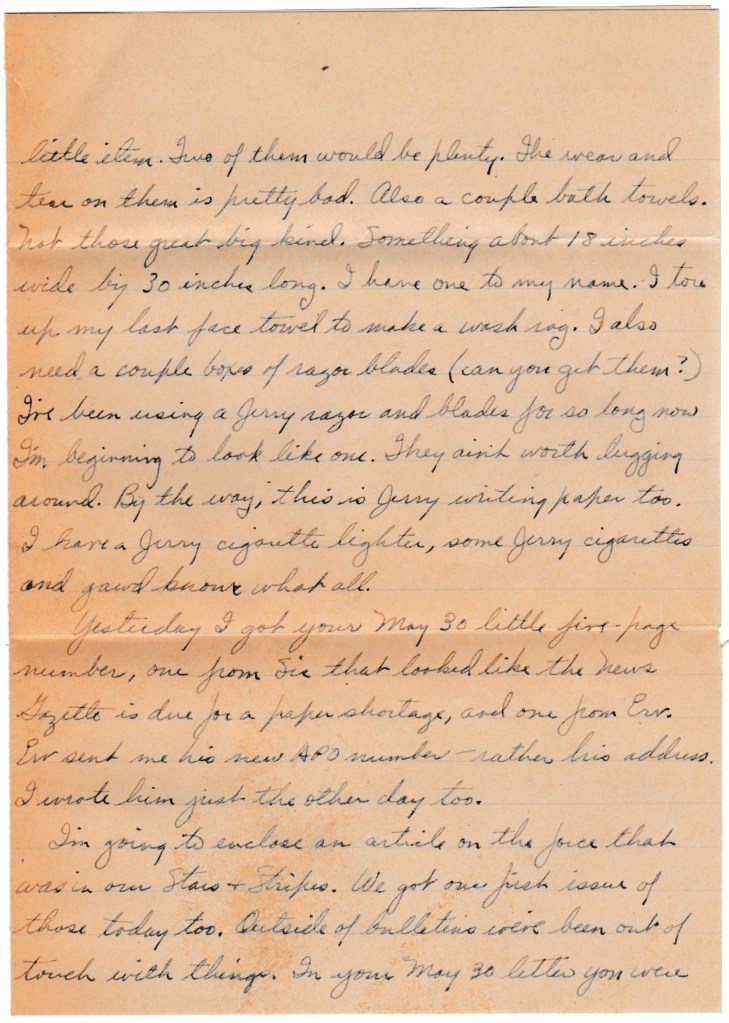 little item. Two of them would be plenty. The wear and
tear on them is pretty bad. Also a couple bath towels.
Not those great big kind. Something about 18 inches
wide by 30 inches long. I have one to my name. I tore
up my last face towel to make a wash rag. I also
need a couple boxes of razor blades (can you get them?)
I've been using a Jerry razor and blades for so long now
I'm beginning to look like one. They ain't worth lugging
around. By the way, this is Jerry writing paper too.
I have a Jerry cigarette lighter, some Jerry cigarettes
and gawd knows what all.
Yesterday I got your May 30 little five-page
number, one from Sis that looked like the News
Gazette is due for a paper shortage, and one from Erv.
Erv sent me his new APO number - rather his address.
I wrote him just the other day too.
I'm going to enclose an article on the force that
was in our Stars + Stripes. We got our first issue of
those today too. Outside of bulletins we've been out of
touch with things. In your May 30 letter you were